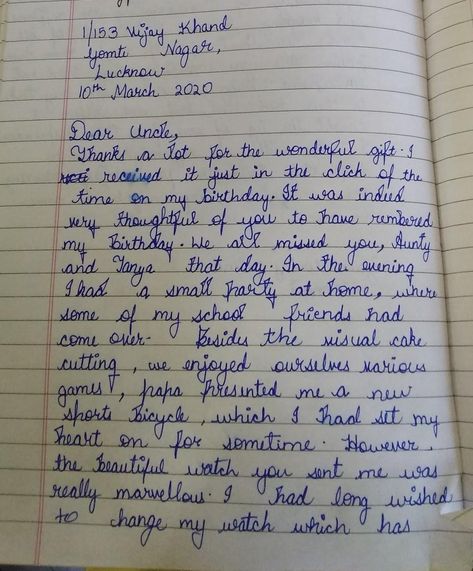 1/153 Vijay Khand
Gomti Nagar,
Lucknow
10th March 2020
Dear Uncle,
Thanks a lot for the wonderful gift. I
received it just in the click of the
time on my birthday. It was indeed
very thoughtful of you to have rembered
my Birthday. We all missed you, Aunty
and Tanya that day. In the evening
I had a small party at home, where
some of my school friends had
come over- Besides the usual cake
cutting, we enjoyed ourselves various
games, papa presented me a new
sports Bicycle, which I had set my
heart on for sometime. However,
the beautiful watch you sent me was
really marvellous. I had long wished
to change my watch which has